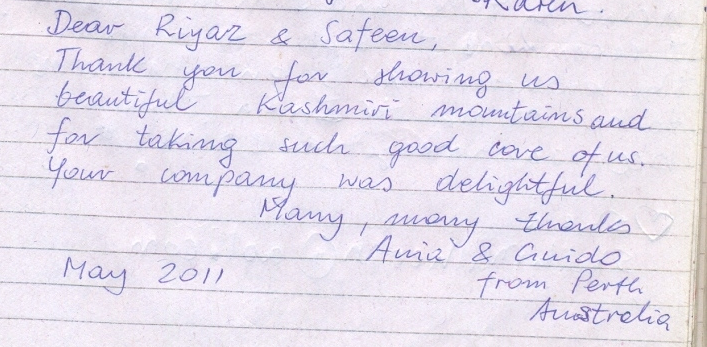 Karen.
Dear Riyaz & Safeen,
Thank you for showing us
beautiful Kashmiri mountains and
for taking such good care of us.
Your company was delightful.
Many, many thanks
Ania & Guido
May 2011 from Perth
Australia